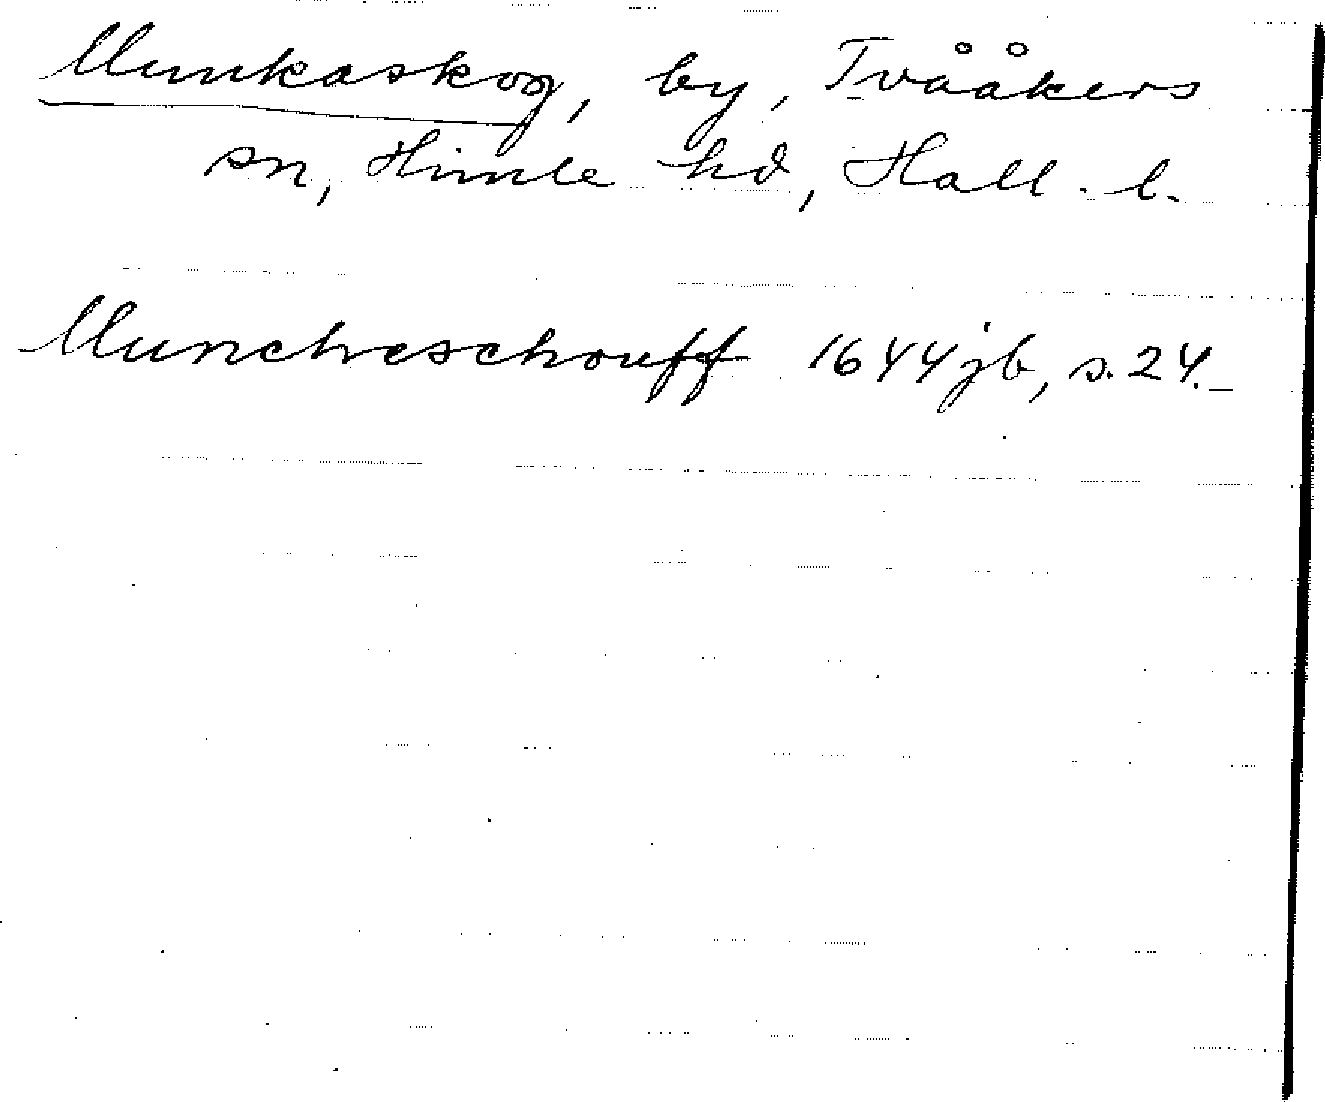 Munkaskog, by, Tvååkers
sn, Himle hd, Hall. l.
Muncheschouff 1644 jb, s. 24.